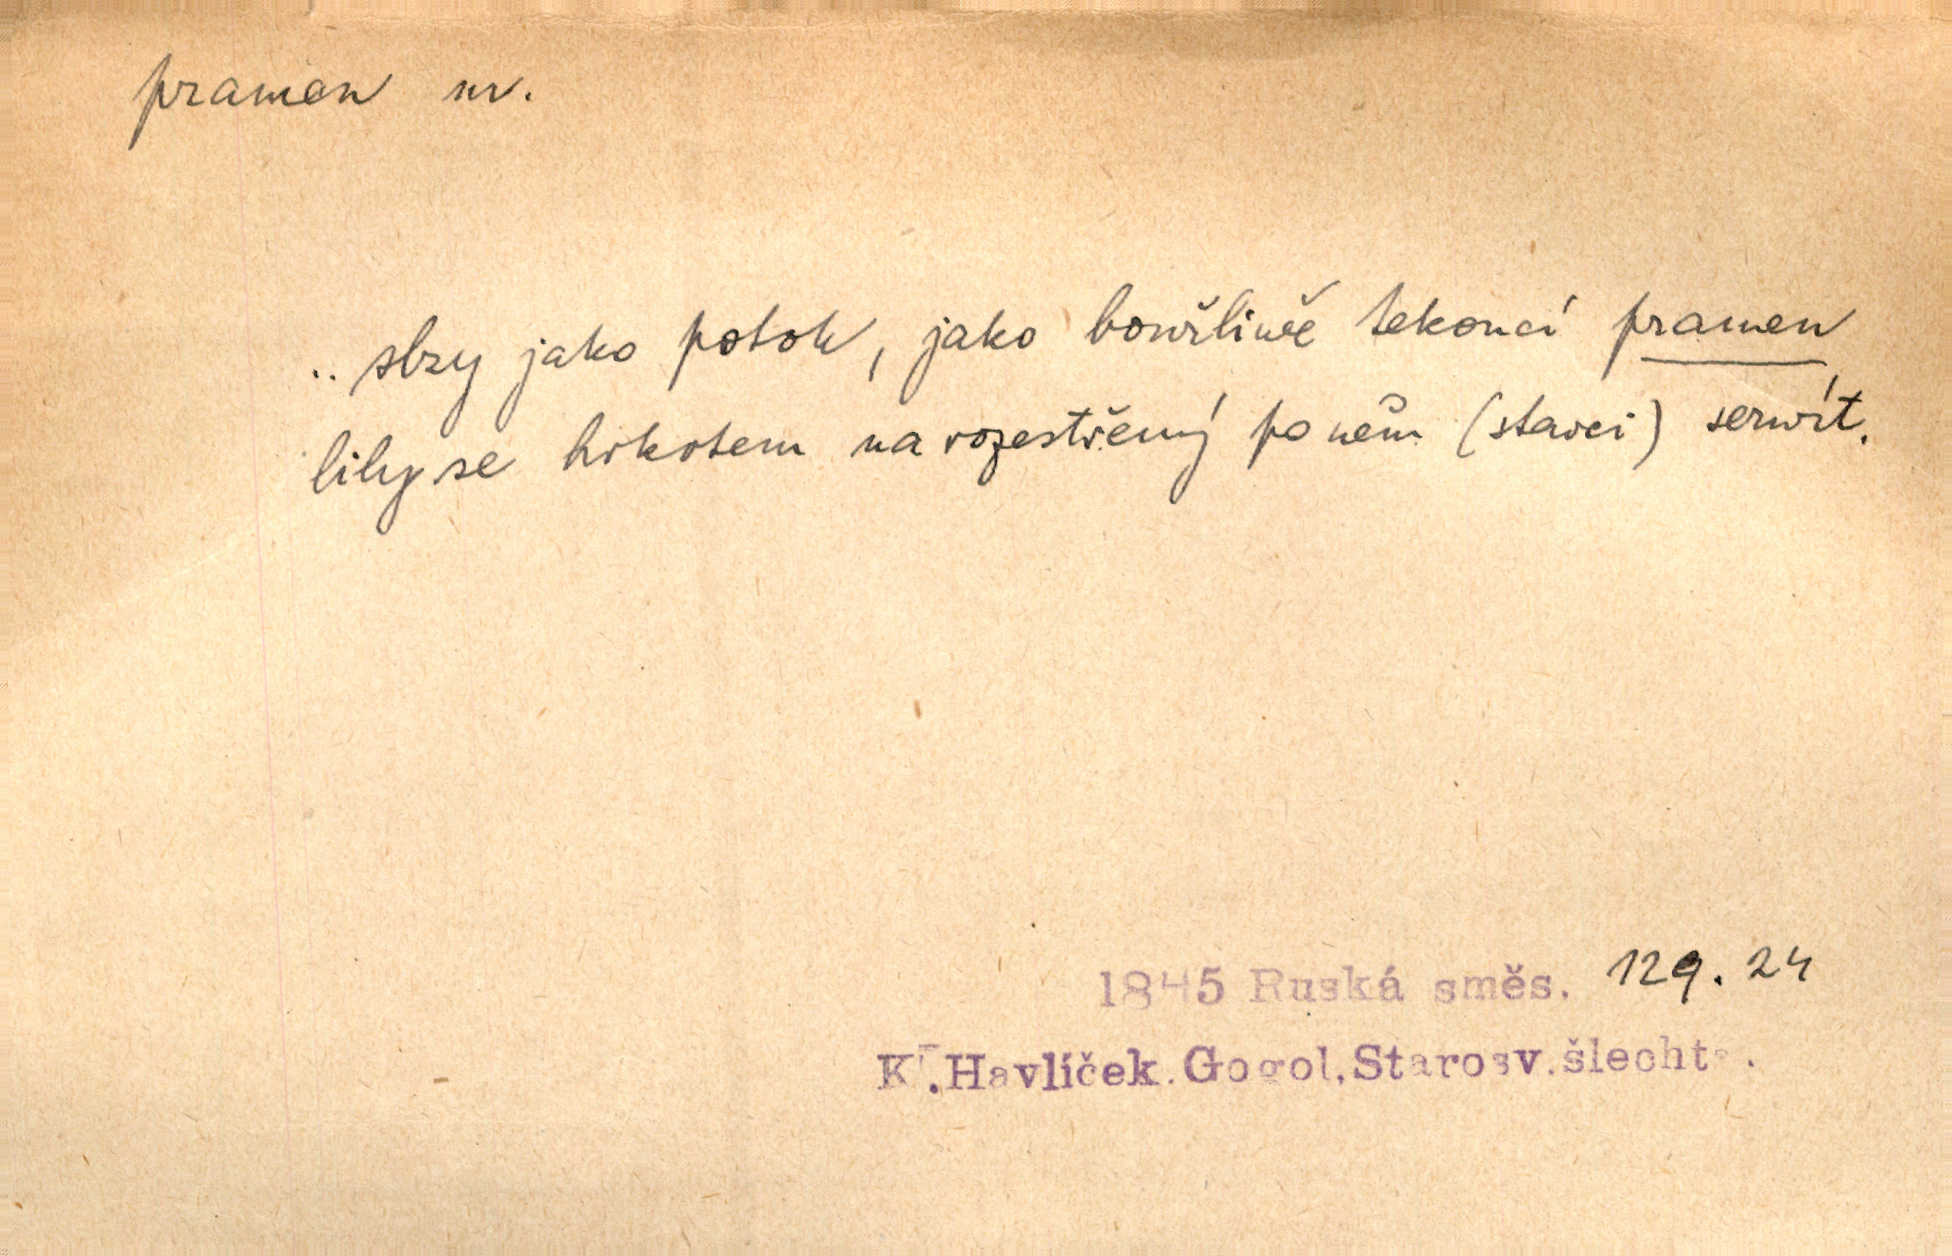 pramen m.
.. slzy jako potok, jako bouřliwě tekoucí pramen
lily se hrkotem na rozestřený po něm (starci) serwít.
1845 Ruská směs. 129. 24
K. Havlíček. Gogol, Starosv. šlecht.